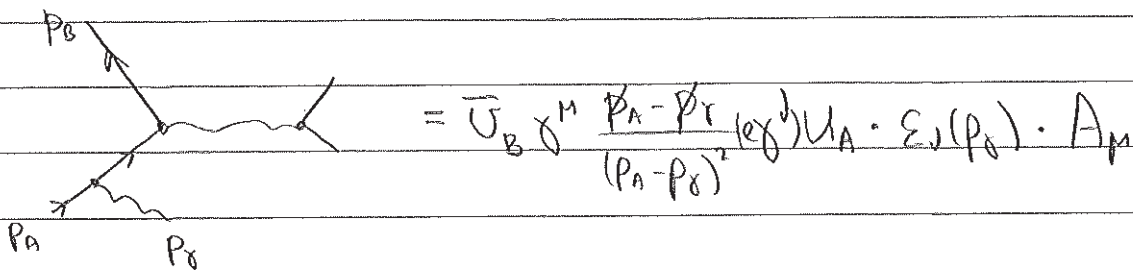 p_B
= \bar{U}_B γ^μ \frac{p̸_A - p̸_γ}{(p_A - p_γ)^2} (eγ^ν) U_A · ε_ν(p_γ) · A_μ
p_A p_γ